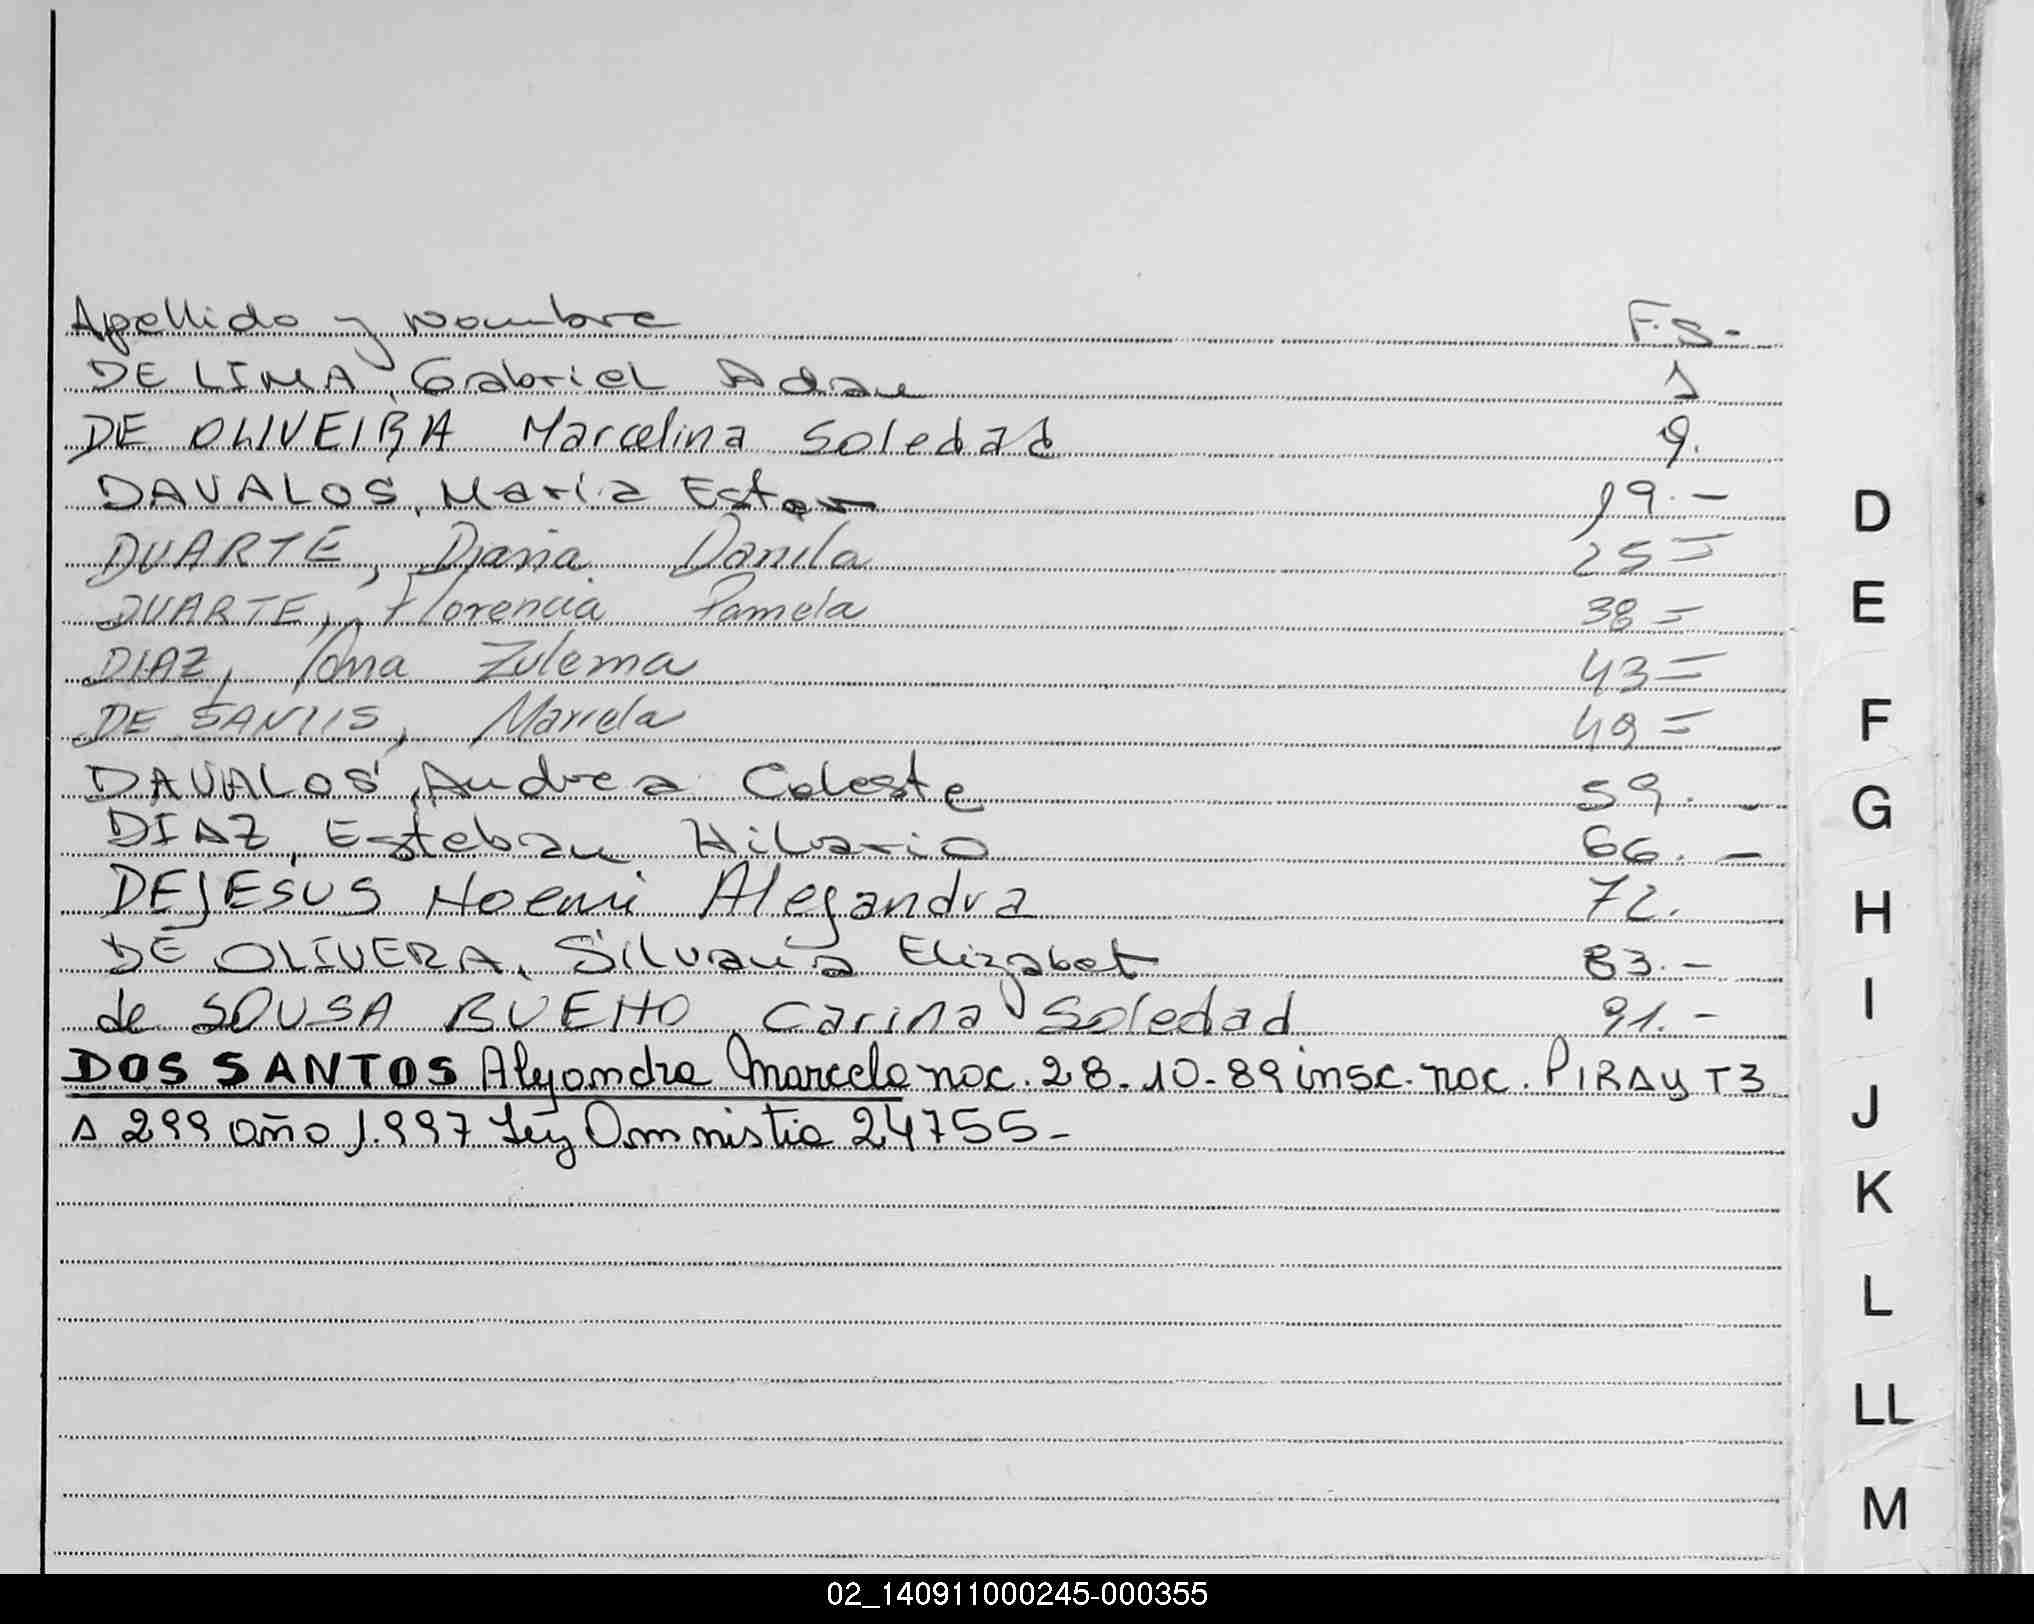 Apellido y Nombre F.S.-
DE LIMA, Gabriel Adan 1
DE OLIVEIRA Marcelina Soledad 9.
DAVALOS, Maria Ester 19.-
DUARTE, Diana Danila 25=
DUARTE, Florencia Pamela 38=
DIAZ, Zulema 43=
DE SANTIS, Mariela 49=
DAVALOS, Andrea Celeste 59.-
DIAZ, Esteban Hilario 66.-
DEJESUS Noemi Alejandra 72.
DE OLIVERA, Silvana Elizabet 83.-
de SOUSA BUENO Carina Soledad 91.-
DOS SANTOS Alejandra Marcela nac. 28-10-89 insc. nac. PIRAY T3
A 299 año 1.997 Ley Omnistia 24755-
D
E
F
G
H
I
J
K
L
LL
M
02_140911000245-000355